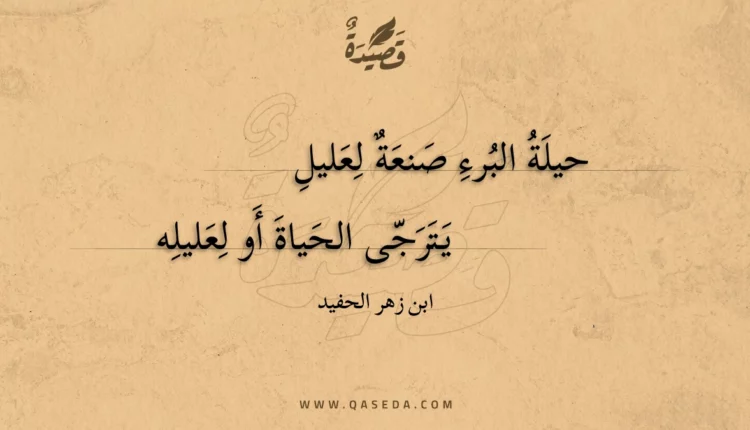 قَصِيدَةٌ
حيلَةُ البُرءِ صَنعَةٌ لِعَليلِ
يَتَرَجّى الحَياةَ أَو لِعَليلِه
ابن زهر الحفيد
WWW.QASEDA.COM